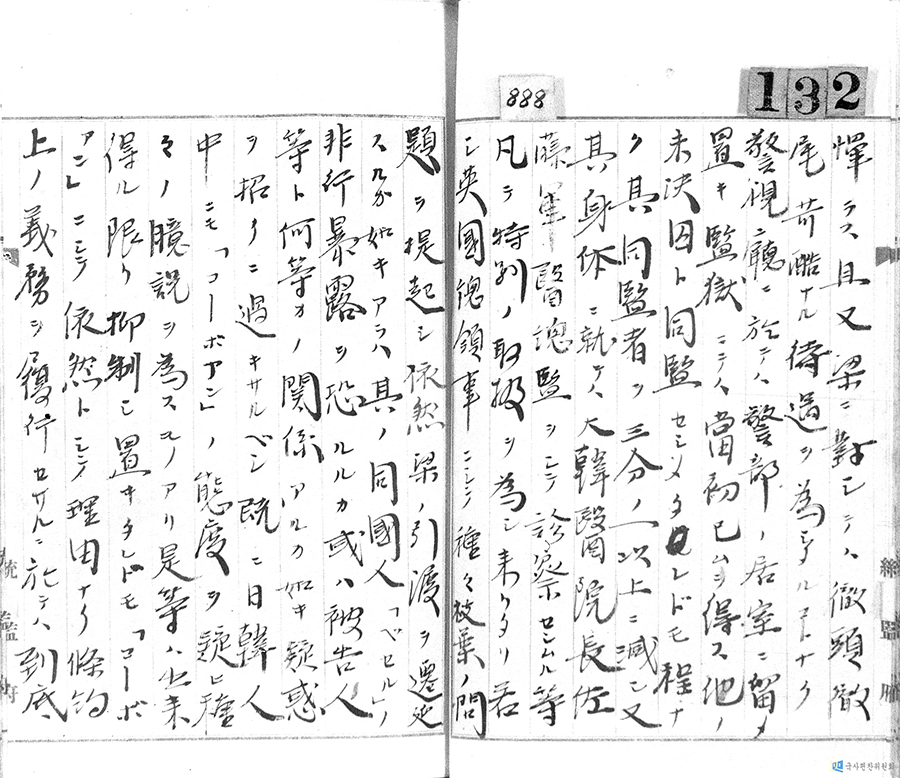 132
888
憚ラス且又梁ニ對シテハ徹頭徹
尾苛酷ナル待遇ヲ為シタルコトナク
警視廳ニ於テハ警部ノ居室ニ留メ
置キ監獄ニテハ當初已ムヲ得ス他ノ
未決囚ト同監セシメタレドモ程ナ
ク其同監者ヲ三分ノ一以上ニ減シ又
其身体ニ就テハ大韓醫院長佐
藤軍醫總監ヲシテ診察セシムル等
凡テ特別ノ取扱ヲ為シ来リタリ若
シ英國總領事ニシテ種々枝葉ノ問
題ヲ提起シ依然梁ノ引渡ヲ遷延
スルカ如キアラハ其ノ同國人「ベセル」ノ
非行暴露ヲ恐ルルカ或ハ被告人
等ト何等カノ関係アルカ如キ疑惑
ヲ招クニ過キサルベシ既ニ日韓人
中ニモ「コーボアン」ノ態度ヲ疑ヒ種
々ノ臆説ヲ為スモノアリ是等ハ出来
得ル限リ抑制シ置キタレドモ「コーボ
アン」ニシテ依然トシテ理由ナク條約
上ノ義務ヲ履行セサルニ於テハ到底
統監府
統監府
국사편찬위원회